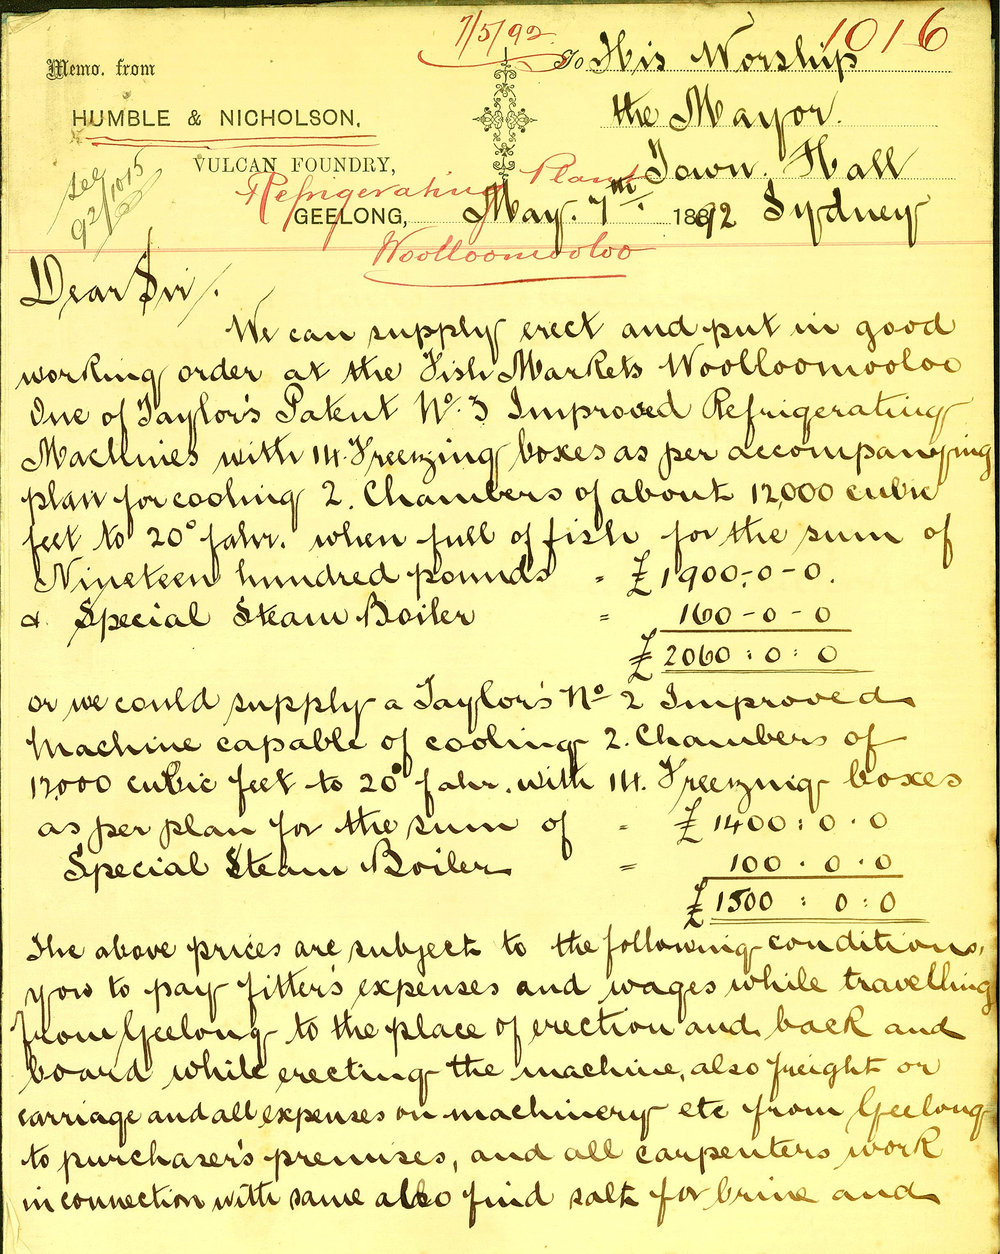 7/5/92.
1016
Memo. from
To His Worship
HUMBLE & NICHOLSON,
the Mayor.
VULCAN FOUNDRY,
Town Hall
See
92/1015
Refrigerating Plant
GEELONG, May. 7th. 1892 Sydney
Woolloomooloo
Dear Sir/.
We can supply erect and put in good
working order at the Fish Markets Woolloomooloo
One of Taylor's Patent No. 3 Improved Refrigerating
Machines with 14. Freezing boxes as per accompanying
plan for cooling 2. Chambers of about 12,000 cubic
feet to 20° fahr. when full of fish for the sum of
Nineteen hundred pounds = £1900-0-0.
& Special Steam Boiler = 160-0-0
£2060:0:0
or we could supply a Taylor's No 2 Improved
Machine capable of cooling 2. Chambers of
12,000 cubic feet to 20° fahr. with 14. Freezing boxes
as per plan for the sum of = £1400:0.0
Special Steam Boiler = 100.0.0
£1500:0:0
The above prices are subject to the following conditions,
you to pay fitter's expenses and wages while travelling
from Geelong to the place of erection and back and
board while erecting the machine, also freight or
carriage and all expenses on machinery etc from Geelong
to purchaser's premises, and all carpenters work
in connection with same also find salt for brine and